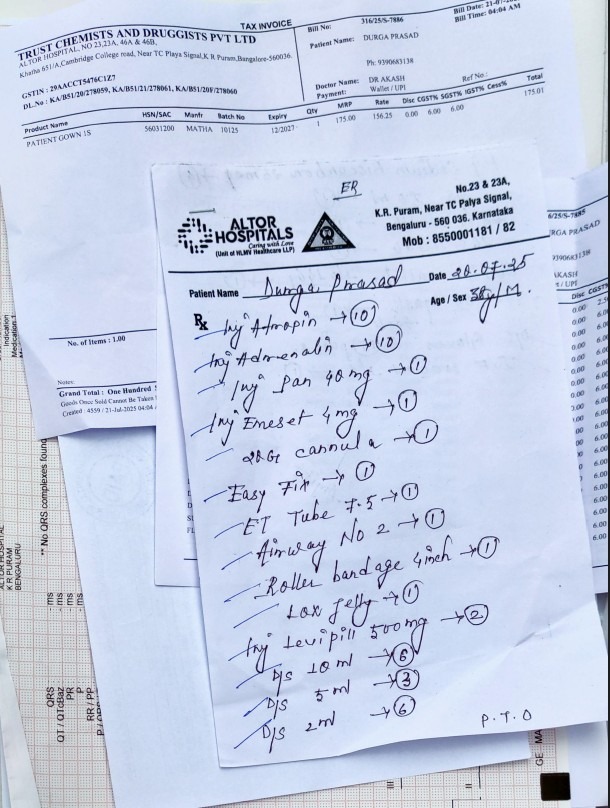 TAX INVOICE
TRUST CHEMISTS AND DRUGGISTS PVT LTD
ALTOR HOSPITAL, NO 23,23A, 46A & 46B,
Khatha 651/A,Cambridge College road, Near TC Playa Signal,K R Puram,Bangalore-560036.
GSTIN : 29AACCT5476C1Z7
DL.No : KA/B51/20/278059, KA/B51/21/278061, KA/B51/20F/278060
Bill No: 316/25/S-7886
Bill Date: 21-07-
Bill Time: 04:04 AM
Patient Name: DURGA PRASAD
Ph: 9390683138
Doctor Name: DR AKASH
Ref No :
Payment: Wallet / UPI
Product Name HSN/SAC Manfr Batch No Expiry Qty MRP Rate Disc CGST% SGST% IGST% Cess% Total
PATIENT GOWN 1S 56031200 MATHA 10125 12/2027 1 175.00 156.25 0.00 6.00 6.00 175.01
No. of Items : 1.00
Notes:
Grand Total : One Hundred
Goods Once Sold Cannot Be Taken
Created : 4559 / 21-Jul-2025 04:04
ER
ALTOR
HOSPITALS
Caring with Love
(Unit of HLMV Healthcare LLP)
No.23 & 23A,
K.R. Puram, Near TC Palya Signal,
Bengaluru - 560 036. Karnataka
Mob : 8550001181 / 82
Patient Name Durga Prasad Date 20.07.25
Age / Sex 38y/M.
Rx
Inj Atropin → 10
Inj Adrenalin → 10
Inj Pan 40 mg → 1
Inj Emeset 4 mg → 1
20G cannula → 1
Easy Fix → 1
ET Tube 7.5 → 1
Airway No 2 → 1
Roller bandage 4inch → 1
Lox Jelly → 1
Inj Levipill 500mg → 2
D/S 10 ml → 6
D/S 5 ml → 3
D/S 2 ml → 6
P.T.O
6/25/S-7885
RGA PRASAD
9390683138
AKASH
/ UPI
Disc CGST%
0.00 2.5
0.00 6.00
0.00 6.00
0.00 6.00
0.00 6.00
0.00 6.00
0.00 6.00
0.00 6.00
0.00 6.00
6.00
6.00
6.00
6.00
6.00
6.00
Indication
Medication
** No QRS complexes found
ALTOR HOSPITAL
K R PURAM
BENGALURU
QRS : - ms
QT / QTcBaz : - ms
PR : - ms
P : - ms
RR / PP
GE MA